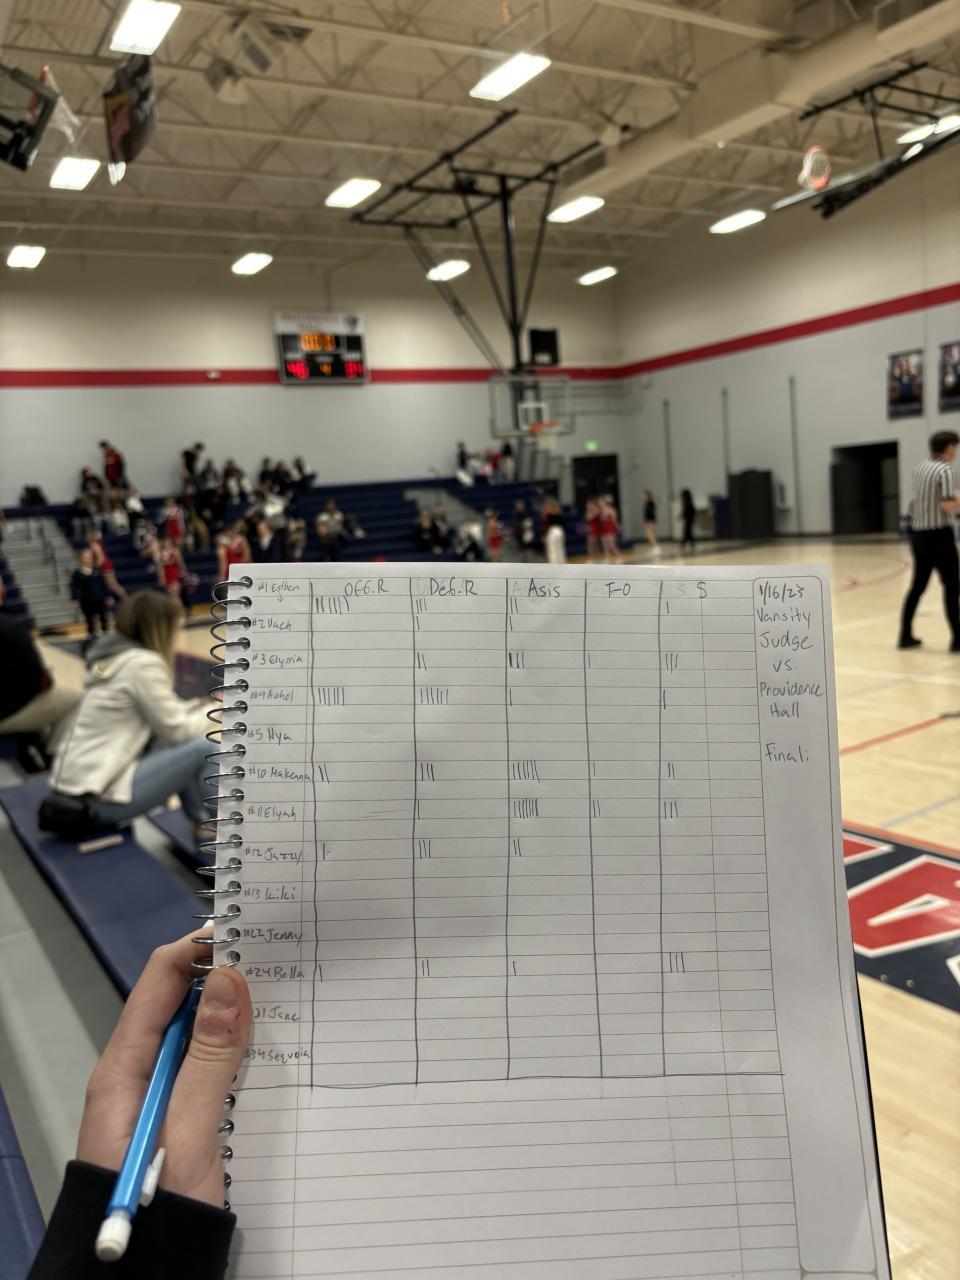 #1 Esther OFF.R Def.R Asis T-O S
#2 Vach
#3 Elyssia
#4 Achol
#5 Nya
#10 Makenna
#11 Elyah
#12 Jazzy
#13 kiki
#22 Jenny
#24 Bella
21 Jane
#34 Sequoia
1/16/23
Varsity
Judge
vs.
Providence
Hall
Final: